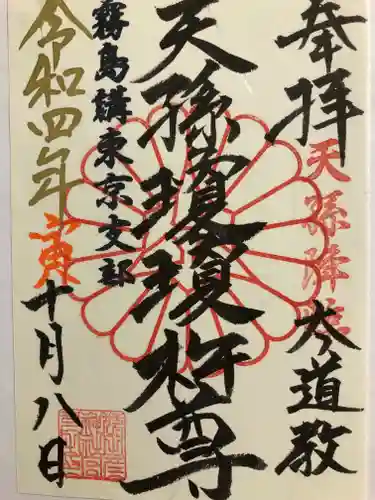 奉拝
天孫降臨
太道教
天孫瓊瓊杵尊
霧島講東京支部
令和四年
十月八日